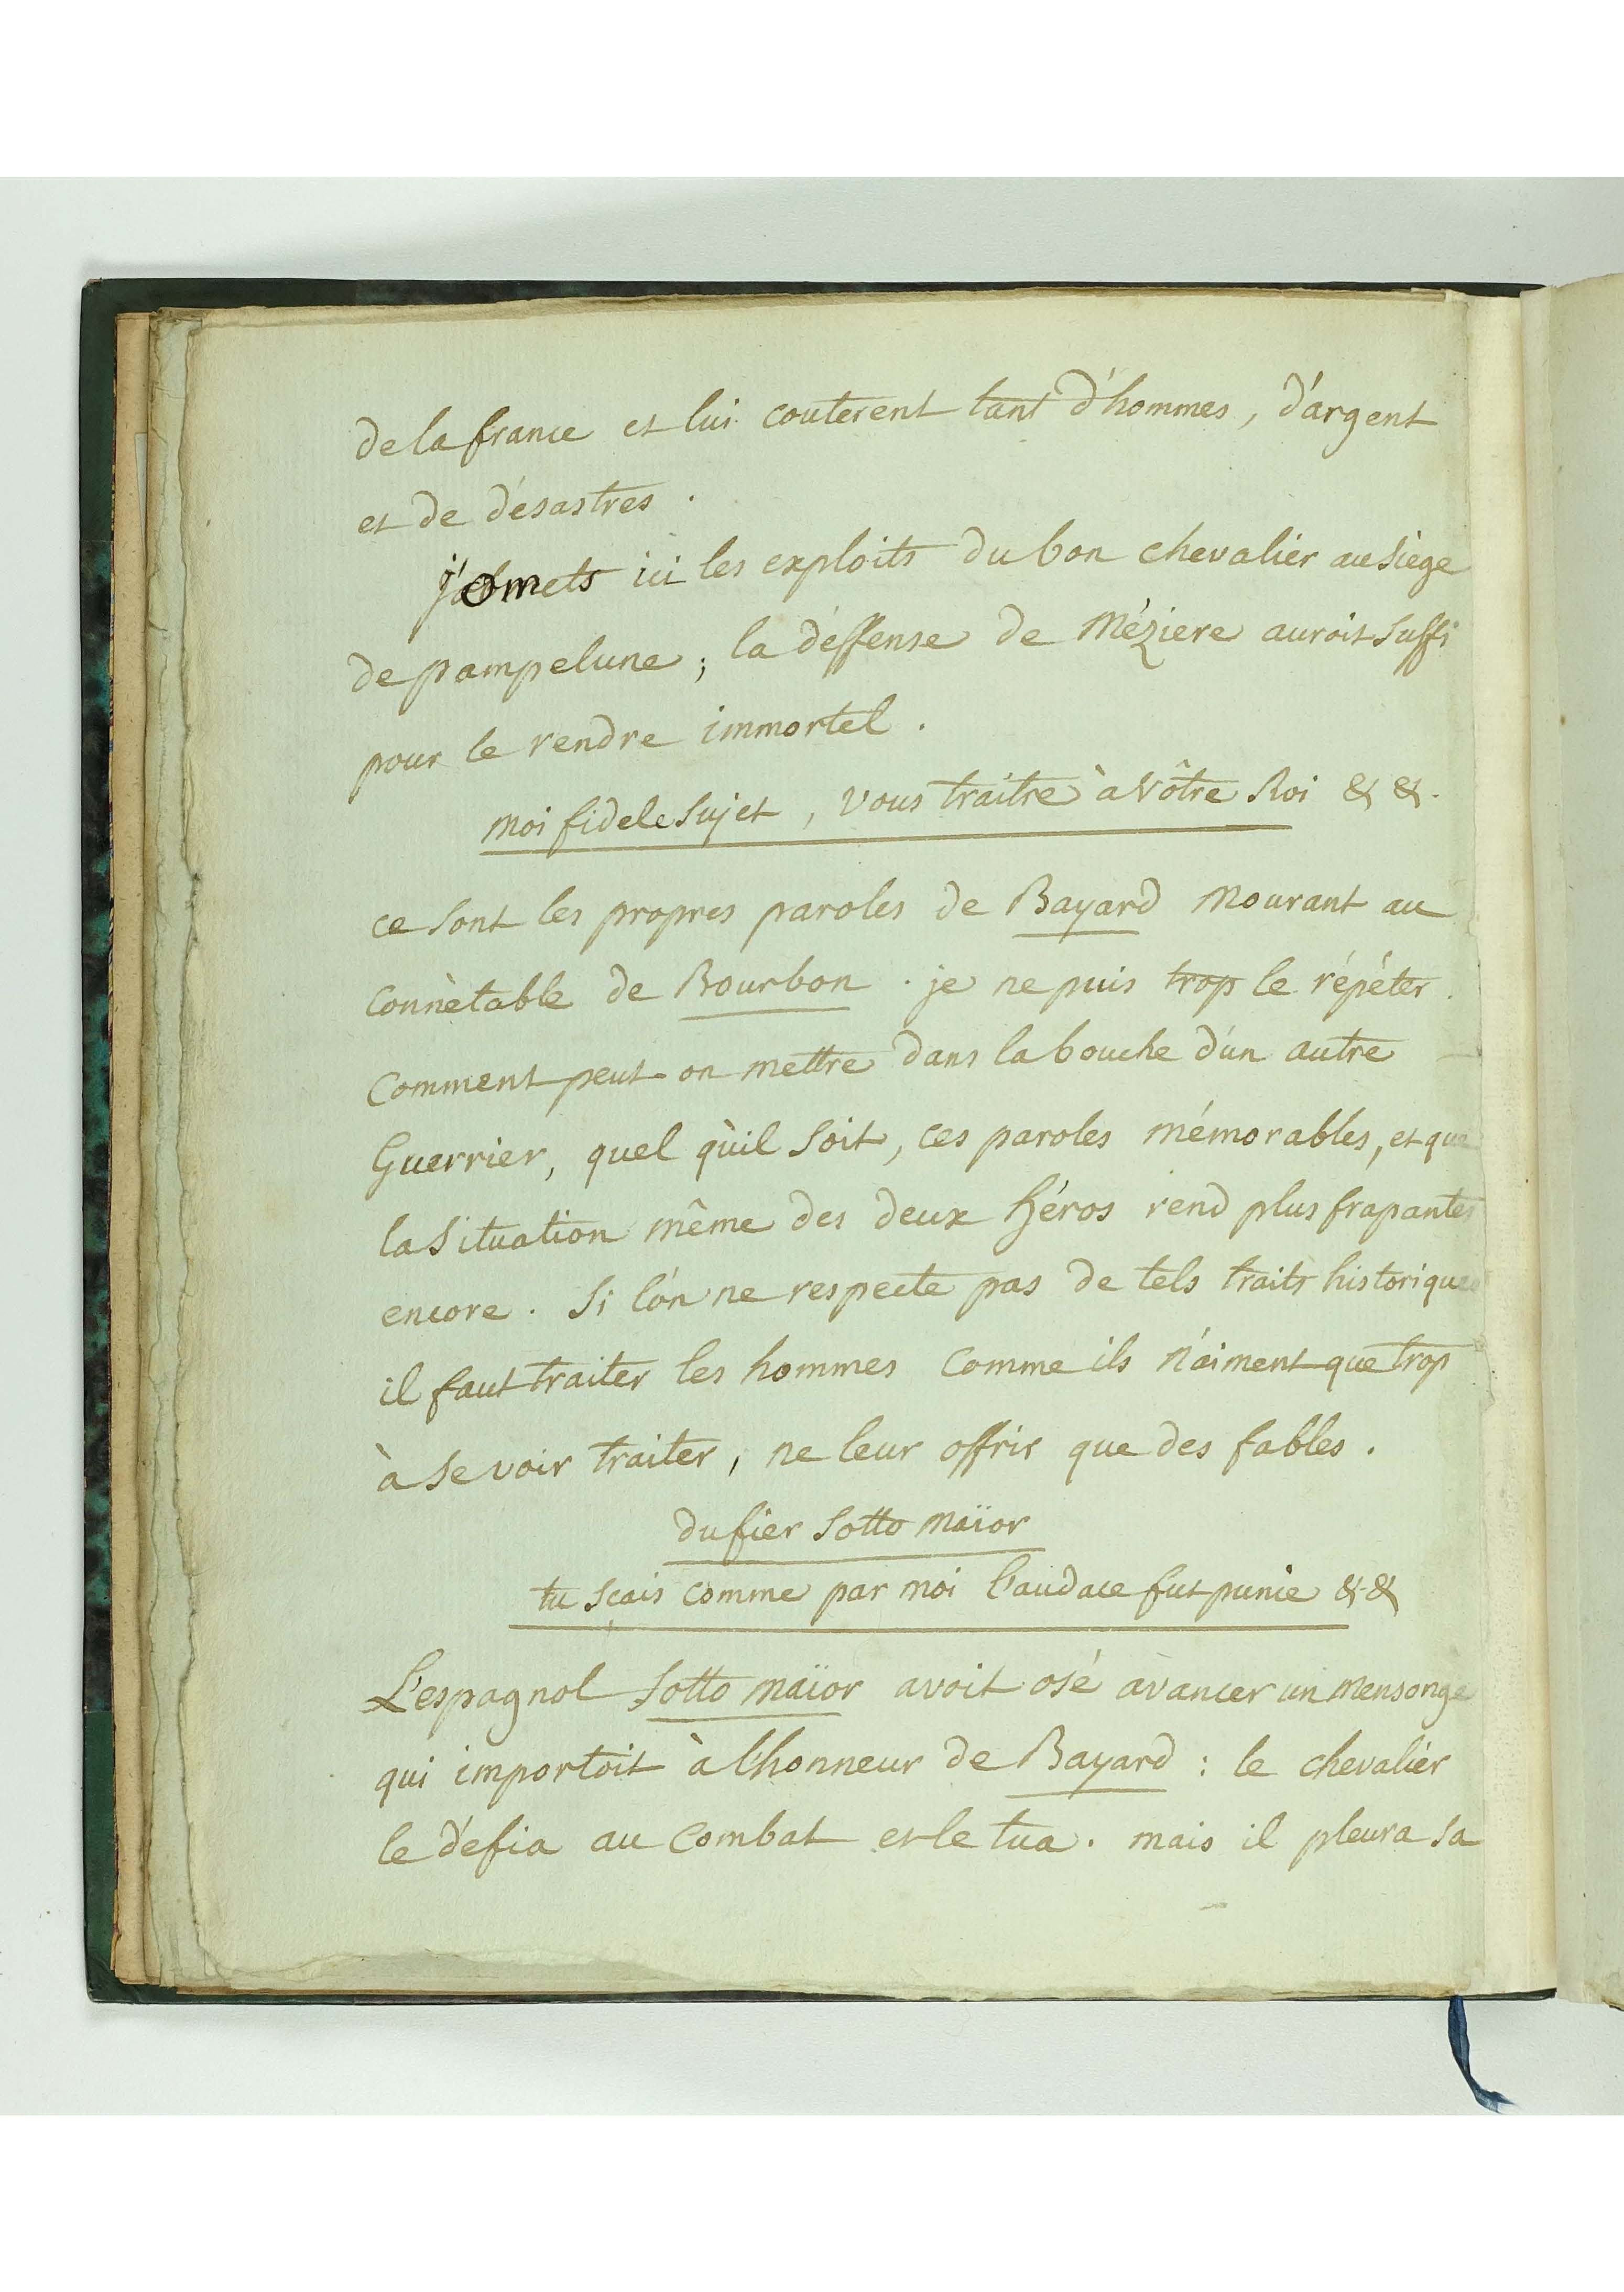 de la france et lui couterent tant d'hommes, d'argent
et de désastres.
j'omets ici les exploits du bon chevalier au siège
de pampelune; la déffense de Méziere auroit suffi
pour le rendre immortel.
moi fidele sujet, vous traitre à vôtre Roi & &.
ce sont les propres paroles de Bayard mourant au
connètable de Bourbon. je ne puis trop le répéter.
Comment peut-on mettre dans la bouche d'un autre
Guerrier, quel qu'il soit, ces paroles mémorables, et que
la situation même des deux héros rend plus frapantes
encore. Si l'on ne respecte pas de tels traits historiques
il faut traiter les hommes comme ils n'aiment que trop
à se voir traiter, ne leur offrir que des fables.
du fier Sotto maïor
tu sçais comme par moi l'audace fut punie & &
L'espagnol Sotto maïor avoit osé avancer un mensonge
qui importoit à l'honneur de Bayard : le chevalier
le défia au combat et le tua. mais il pleura sa